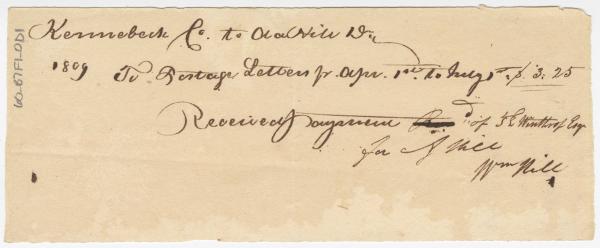 Kennebeck Co. to Aa Hill Dr.
1809 To Postage Letters pr. Apr. 1st. to July 1st. $ 3.25
Received payment of T L Winthrop Esqr
for A Hill
Wm Hill
60-67F1-0D1